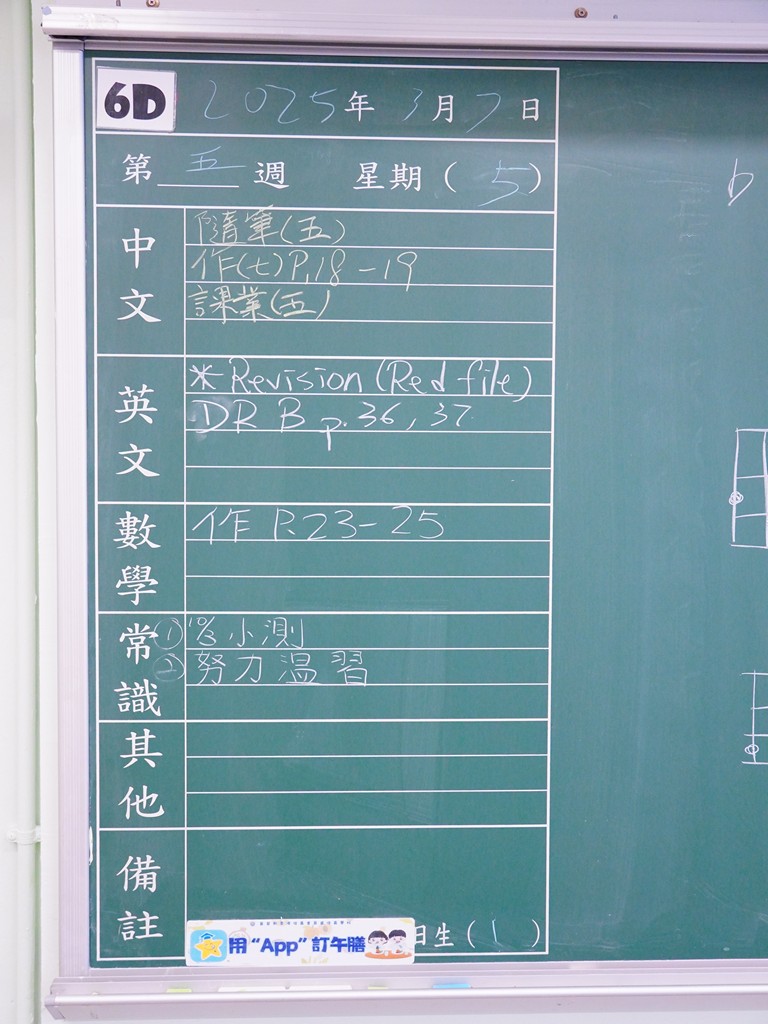 6D 2025年3月7日
第五週 星期(5)
中文
隨筆(五)
作(七)P.18-19
課業(五)
英文
*Revision (Red file)
DR B p.36, 37
數學
作 P.23-25
常識
① 10/3 小測
② 努力温習
其他
備註
用“App”訂午膳
日生(1)
b